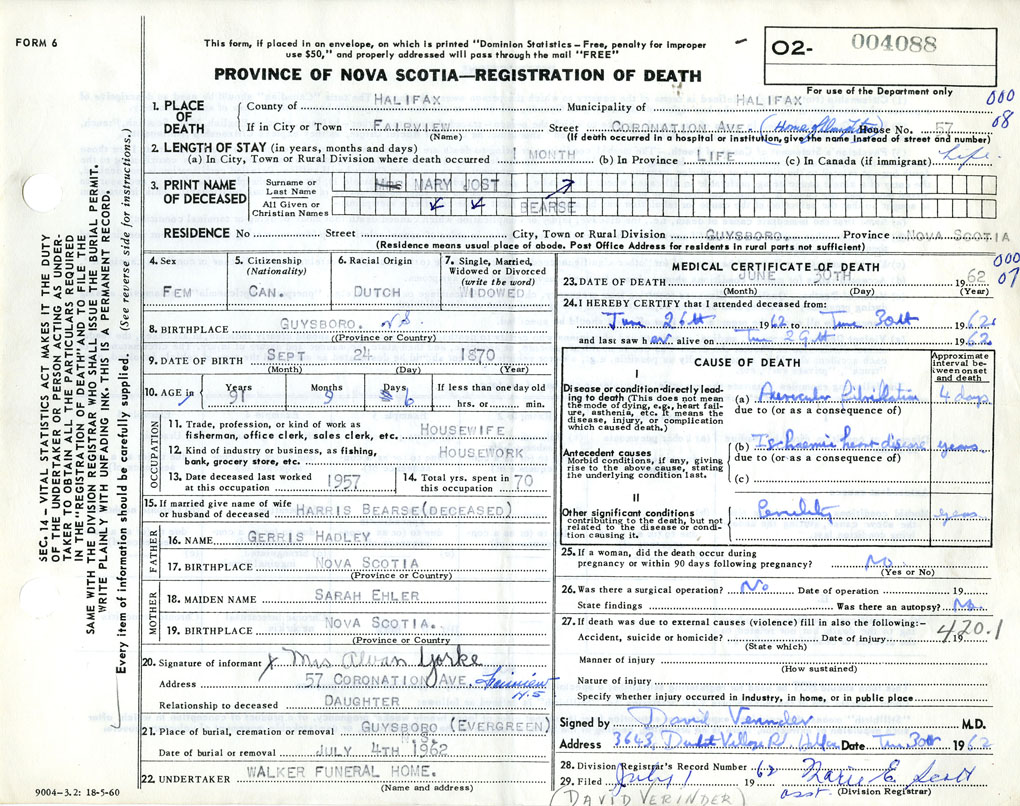 FORM 6
This form, if placed in an envelope, on which is printed "Dominion Statistics – Free, penalty for improper
use $50," and properly addressed will pass through the mail "FREE"
O2- 004088
PROVINCE OF NOVA SCOTIA—REGISTRATION OF DEATH
For use of the Department only
000
08
1. PLACE OF DEATH
County of HALIFAX Municipality of HALIFAX
If in City or Town FAIRVIEW Street CORONATION AVE. (Home of daughter) House No. 57
(Name) (If death occurred in a hospital or institution, give its name instead of street and number)
2. LENGTH OF STAY (in years, months and days)
(a) In City, Town or Rural Division where death occurred 1 MONTH (b) In Province LIFE (c) In Canada (if immigrant) Life.
3. PRINT NAME OF DECEASED
Surname or Last Name MRS MARY JOST
All Given or Christian Names BEARSE
RESIDENCE No Street City, Town or Rural Division GUYSBORO. Province NOVA SCOTIA
(Residence means usual place of abode. Post Office Address for residents in rural parts not sufficient)
000
07
4. Sex
FEM
5. Citizenship (Nationality)
CAN.
6. Racial Origin
DUTCH
7. Single, Married, Widowed or Divorced (write the word)
WIDOWED
8. BIRTHPLACE GUYSBORO. N.S.
(Province or Country)
9. DATE OF BIRTH SEPT 24 1870
(Month) (Day) (Year)
10. AGE in Years Months Days If less than one day old
91 9 6 hrs. or min.
OCCUPATION
11. Trade, profession, or kind of work as
fisherman, office clerk, sales clerk, etc. HOUSEWIFE
12. Kind of industry or business, as fishing,
bank, grocery store, etc. HOUSEWORK
13. Date deceased last worked
at this occupation 1957
14. Total yrs. spent in
this occupation 70
15. If married give name of wife
or husband of deceased HARRIS BEARSE (DECEASED)
FATHER
16. NAME GERRIS HADLEY
17. BIRTHPLACE NOVA SCOTIA
(Province or Country)
MOTHER
18. MAIDEN NAME SARAH EHLER
19. BIRTHPLACE NOVA SCOTIA.
(Province or Country
20. Signature of informant x Mrs Alvan Yorke
Address 57 CORONATION AVE. Fairview N.S
Relationship to deceased DAUGHTER
21. Place of burial, cremation or removal GUYSBORO (EVERGREEN)
N.S.
Date of burial or removal JULY 4TH 1962
22. UNDERTAKER WALKER FUNERAL HOME.
(Name and address)
9004-3.2: 18-5-60
MEDICAL CERTIFICATE OF DEATH
23. DATE OF DEATH JUNE 30TH 1962
(Month) (Day) (Year)
24. I HEREBY CERTIFY that I attended deceased from:
June 26th 1962 to June 30th 1962
and last saw her alive on June 29th 1962
CAUSE OF DEATH
Approximate interval between onset and death
I
Disease or condition directly leading to death (This does not mean the mode of dying, e.g., heart failure, asthenia, etc. It means the disease, injury, or complication which caused death.)
(a) Auricular Fibrillation 4 days
due to (or as a consequence of)
Antecedent causes
Morbid conditions, if any, giving rise to the above cause, stating the underlying condition last.
(b) Ischaemic heart disease years
due to (or as a consequence of)
(c)
II
Other significant conditions
contributing to the death, but not related to the disease or condition causing it.
Senility years
25. If a woman, did the death occur during
pregnancy or within 90 days following pregnancy? No
(Yes or No)
26. Was there a surgical operation? No Date of operation 19
State findings Was there an autopsy? No
27. If death was due to external causes (violence) fill in also the following:-
420.1
Accident, suicide or homicide? Date of injury 19
(State which)
Manner of injury
(How sustained)
Nature of injury
Specify whether injury occurred in Industry, in home, or in public place
Signed by David Verinder M.D.
Address 3643 Dutch Village Rd Halifax Date June 30th 1962
28. Division Registrar's Record Number
29. Filed July 1 1962 Marie E. Scott
asst. (Division Registrar)
(DAVID VERINDER)
SEC. 14 – VITAL STATISTICS ACT MAKES IT THE DUTY
OF THE UNDERTAKER OR PERSON ACTING AS UNDER-
TAKER TO OBTAIN ALL THE PARTICULARS REQUIRED
IN THE "REGISTRATION OF DEATH" AND TO FILE THE
SAME WITH THE DIVISION REGISTRAR WHO SHALL ISSUE THE BURIAL PERMIT.
WRITE PLAINLY WITH UNFADING INK. THIS IS A PERMANENT RECORD.
Every item of information should be carefully supplied. (See reverse side for instructions.)